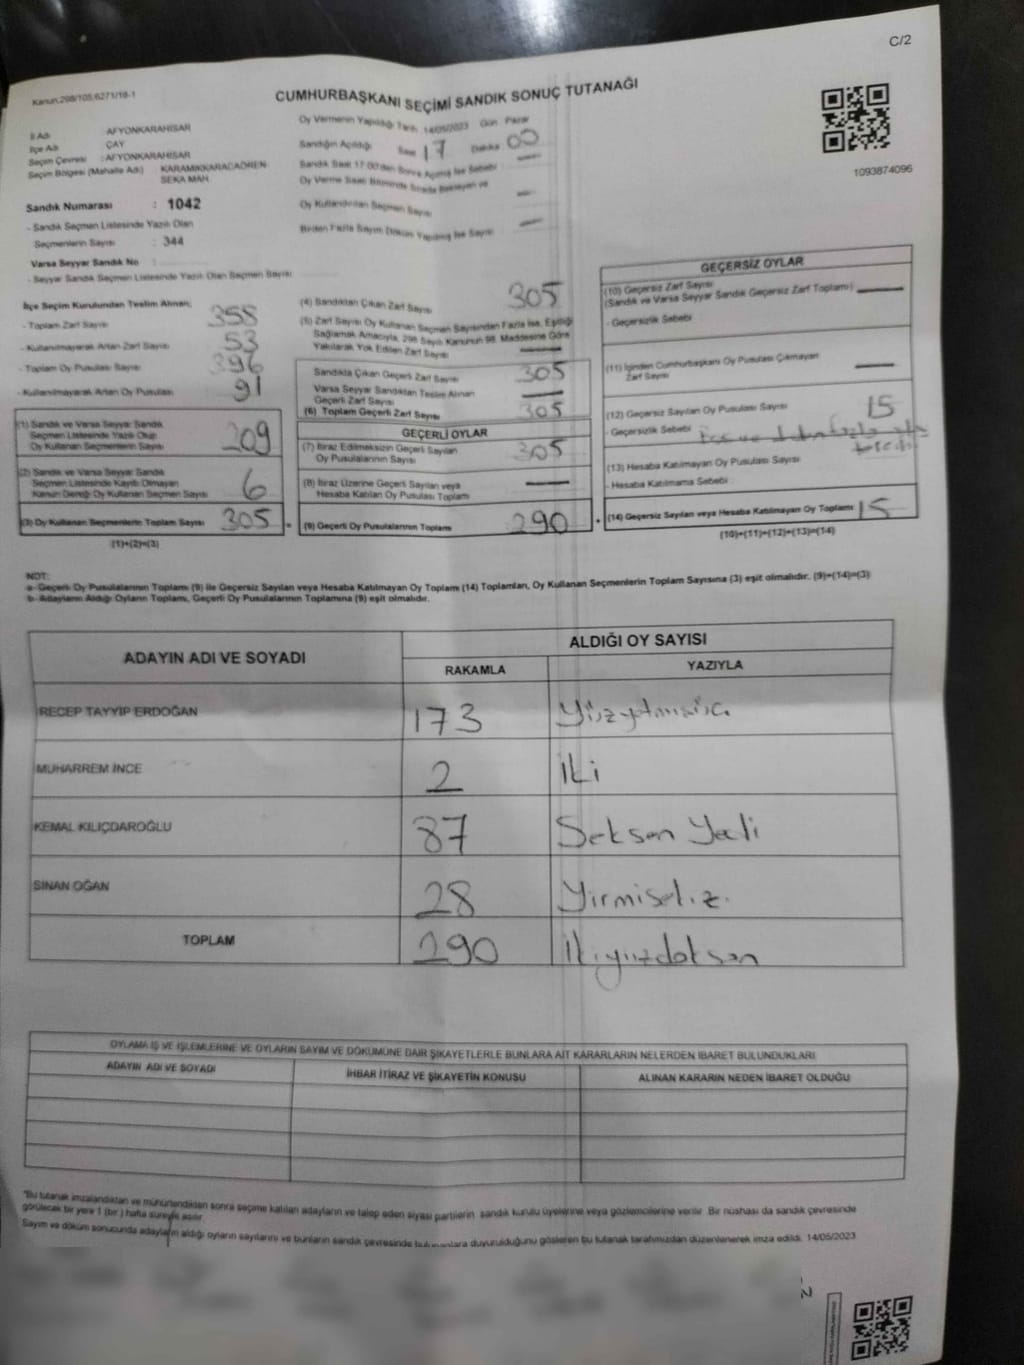 C/2
Kanun:298/105,6271/18-1
CUMHURBAŞKANI SEÇİMİ SANDIK SONUÇ TUTANAĞI
1093874096
İl Adı : AFYONKARAHİSAR
İlçe Adı : ÇAY
Seçim Çevresi : AFYONKARAHİSAR
Seçim Bölgesi (Mahalle Adı) : KARAMIKKARACAÖREN
SEKA MAH.
Sandık Numarası : 1042
- Sandık Seçmen Listesinde Yazılı Olan
Seçmenlerin Sayısı : 344
Varsa Seyyar Sandık No :
- Seyyar Sandık Seçmen Listesinde Yazılı Olan Seçmen Sayısı:
Oy Vermenin Yapıldığı Tarih 14/05/2023 Gün Pazar
Sandığın Açıldığı Saat 17 Dakika 00
Sandık Saat 17:00'den Sonra Açılmış İse Sebebi —
Oy Verme Saati Bitiminde Sırada Bekleyen ve
Oy Kullandırılan Seçmen Sayısı —
Birden Fazla Sayım Döküm Yapılmış İse Sayısı —
İlçe Seçim Kurulundan Teslim Alınan;
- Toplam Zarf Sayısı 358
- Kullanılmayarak Artan Zarf Sayısı 53
- Toplam Oy Pusulası Sayısı 396
- Kullanılmayarak Artan Oy Pusulası 91
(1) Sandık ve Varsa Seyyar Sandık
Seçmen Listesinde Yazılı Olup
Oy Kullanan Seçmenlerin Sayısı 209
(2) Sandık ve Varsa Seyyar Sandık
Seçmen Listesinde Kayıtlı Olmayan
Kanun Gereği Oy Kullanan Seçmen Sayısı 6
(3) Oy Kullanan Seçmenlerin Toplam Sayısı 305 =
(1)+(2)=(3)
(4) Sandıktan Çıkan Zarf Sayısı 305
(5) Zarf Sayısı Oy Kullanan Seçmen Sayısından Fazla İse, Eşitliği
Sağlamak Amacıyla, 298 Sayılı Kanunun 98. Maddesine Göre
Yakılarak Yok Edilen Zarf Sayısı —
Sandıkta Çıkan Geçerli Zarf Sayısı 305
Varsa Seyyar Sandıktan Teslim Alınan
Geçerli Zarf Sayısı —
(6) Toplam Geçerli Zarf Sayısı 305
GEÇERLİ OYLAR
(7) İtiraz Edilmeksizin Geçerli Sayılan
Oy Pusulalarının Sayısı 305
(8) İtiraz Üzerine Geçerli Sayılan veya
Hesaba Katılan Oy Pusulası Toplamı —
(9) Geçerli Oy Pusulalarının Toplamı 290 +
GEÇERSİZ OYLAR
(10) Geçersiz Zarf Sayısı
(Sandık ve Varsa Seyyar Sandık Geçersiz Zarf Toplamı) : —
- Geçersizlik Sebebi
(11) İçinden Cumhurbaşkanı Oy Pusulası Çıkmayan
Zarf Sayısı —
(12) Geçersiz Sayılan Oy Pusulası Sayısı 15
- Geçersizlik Sebebi
(13) Hesaba Katılmayan Oy Pusulası Sayısı
- Hesaba Katılmama Sebebi :
(14) Geçersiz Sayılan veya Hesaba Katılmayan Oy Toplamı 15
(10)+(11)+(12)+(13)=(14)
NOT:
a- Geçerli Oy Pusulalarının Toplamı (9) ile Geçersiz Sayılan veya Hesaba Katılmayan Oy Toplamı (14) Toplamları, Oy Kullanan Seçmenlerin Toplam Sayısına (3) eşit olmalıdır. (9)+(14)=(3)
b- Adayların Aldığı Oyların Toplamı, Geçerli Oy Pusulalarının Toplamına (9) eşit olmalıdır.
ADAYIN ADI VE SOYADI ALDIĞI OY SAYISI
RAKAMLA YAZIYLA
RECEP TAYYİP ERDOĞAN 173 Yüzyetmişüç.
MUHARREM İNCE 2 iki
KEMAL KILIÇDAROĞLU 87 Seksen Yedi
SİNAN OĞAN 28 Yirmisekiz.
TOPLAM 290 ikiyüzdoksan
OYLAMA İŞ VE İŞLEMLERİNE VE OYLARIN SAYIM VE DÖKÜMÜNE DAİR ŞİKAYETLERLE BUNLARA AİT KARARLARIN NELERDEN İBARET BULUNDUKLARI
ADAYIN ADI VE SOYADI İHBAR İTİRAZ VE ŞİKAYETİN KONUSU ALINAN KARARIN NEDEN İBARET OLDUĞU
"Bu tutanak imzalandıktan ve mühürlendikten sonra seçime katılan adayların ve talep eden siyasi partilerin sandık kurulu üyelerine veya gözlemcilerine verilir. Bir nüshası da sandık çevresinde
görülecek bir yere 1 (bir ) hafta süreyle asılır.
Sayım ve döküm sonucunda adayların aldığı oyların sayılarını ve bunların sandık çevresinde bulunanlara duyurulduğunu gösteren bu tutanak tarafımızdan düzenlenerek imza edildi. 14/05/2023